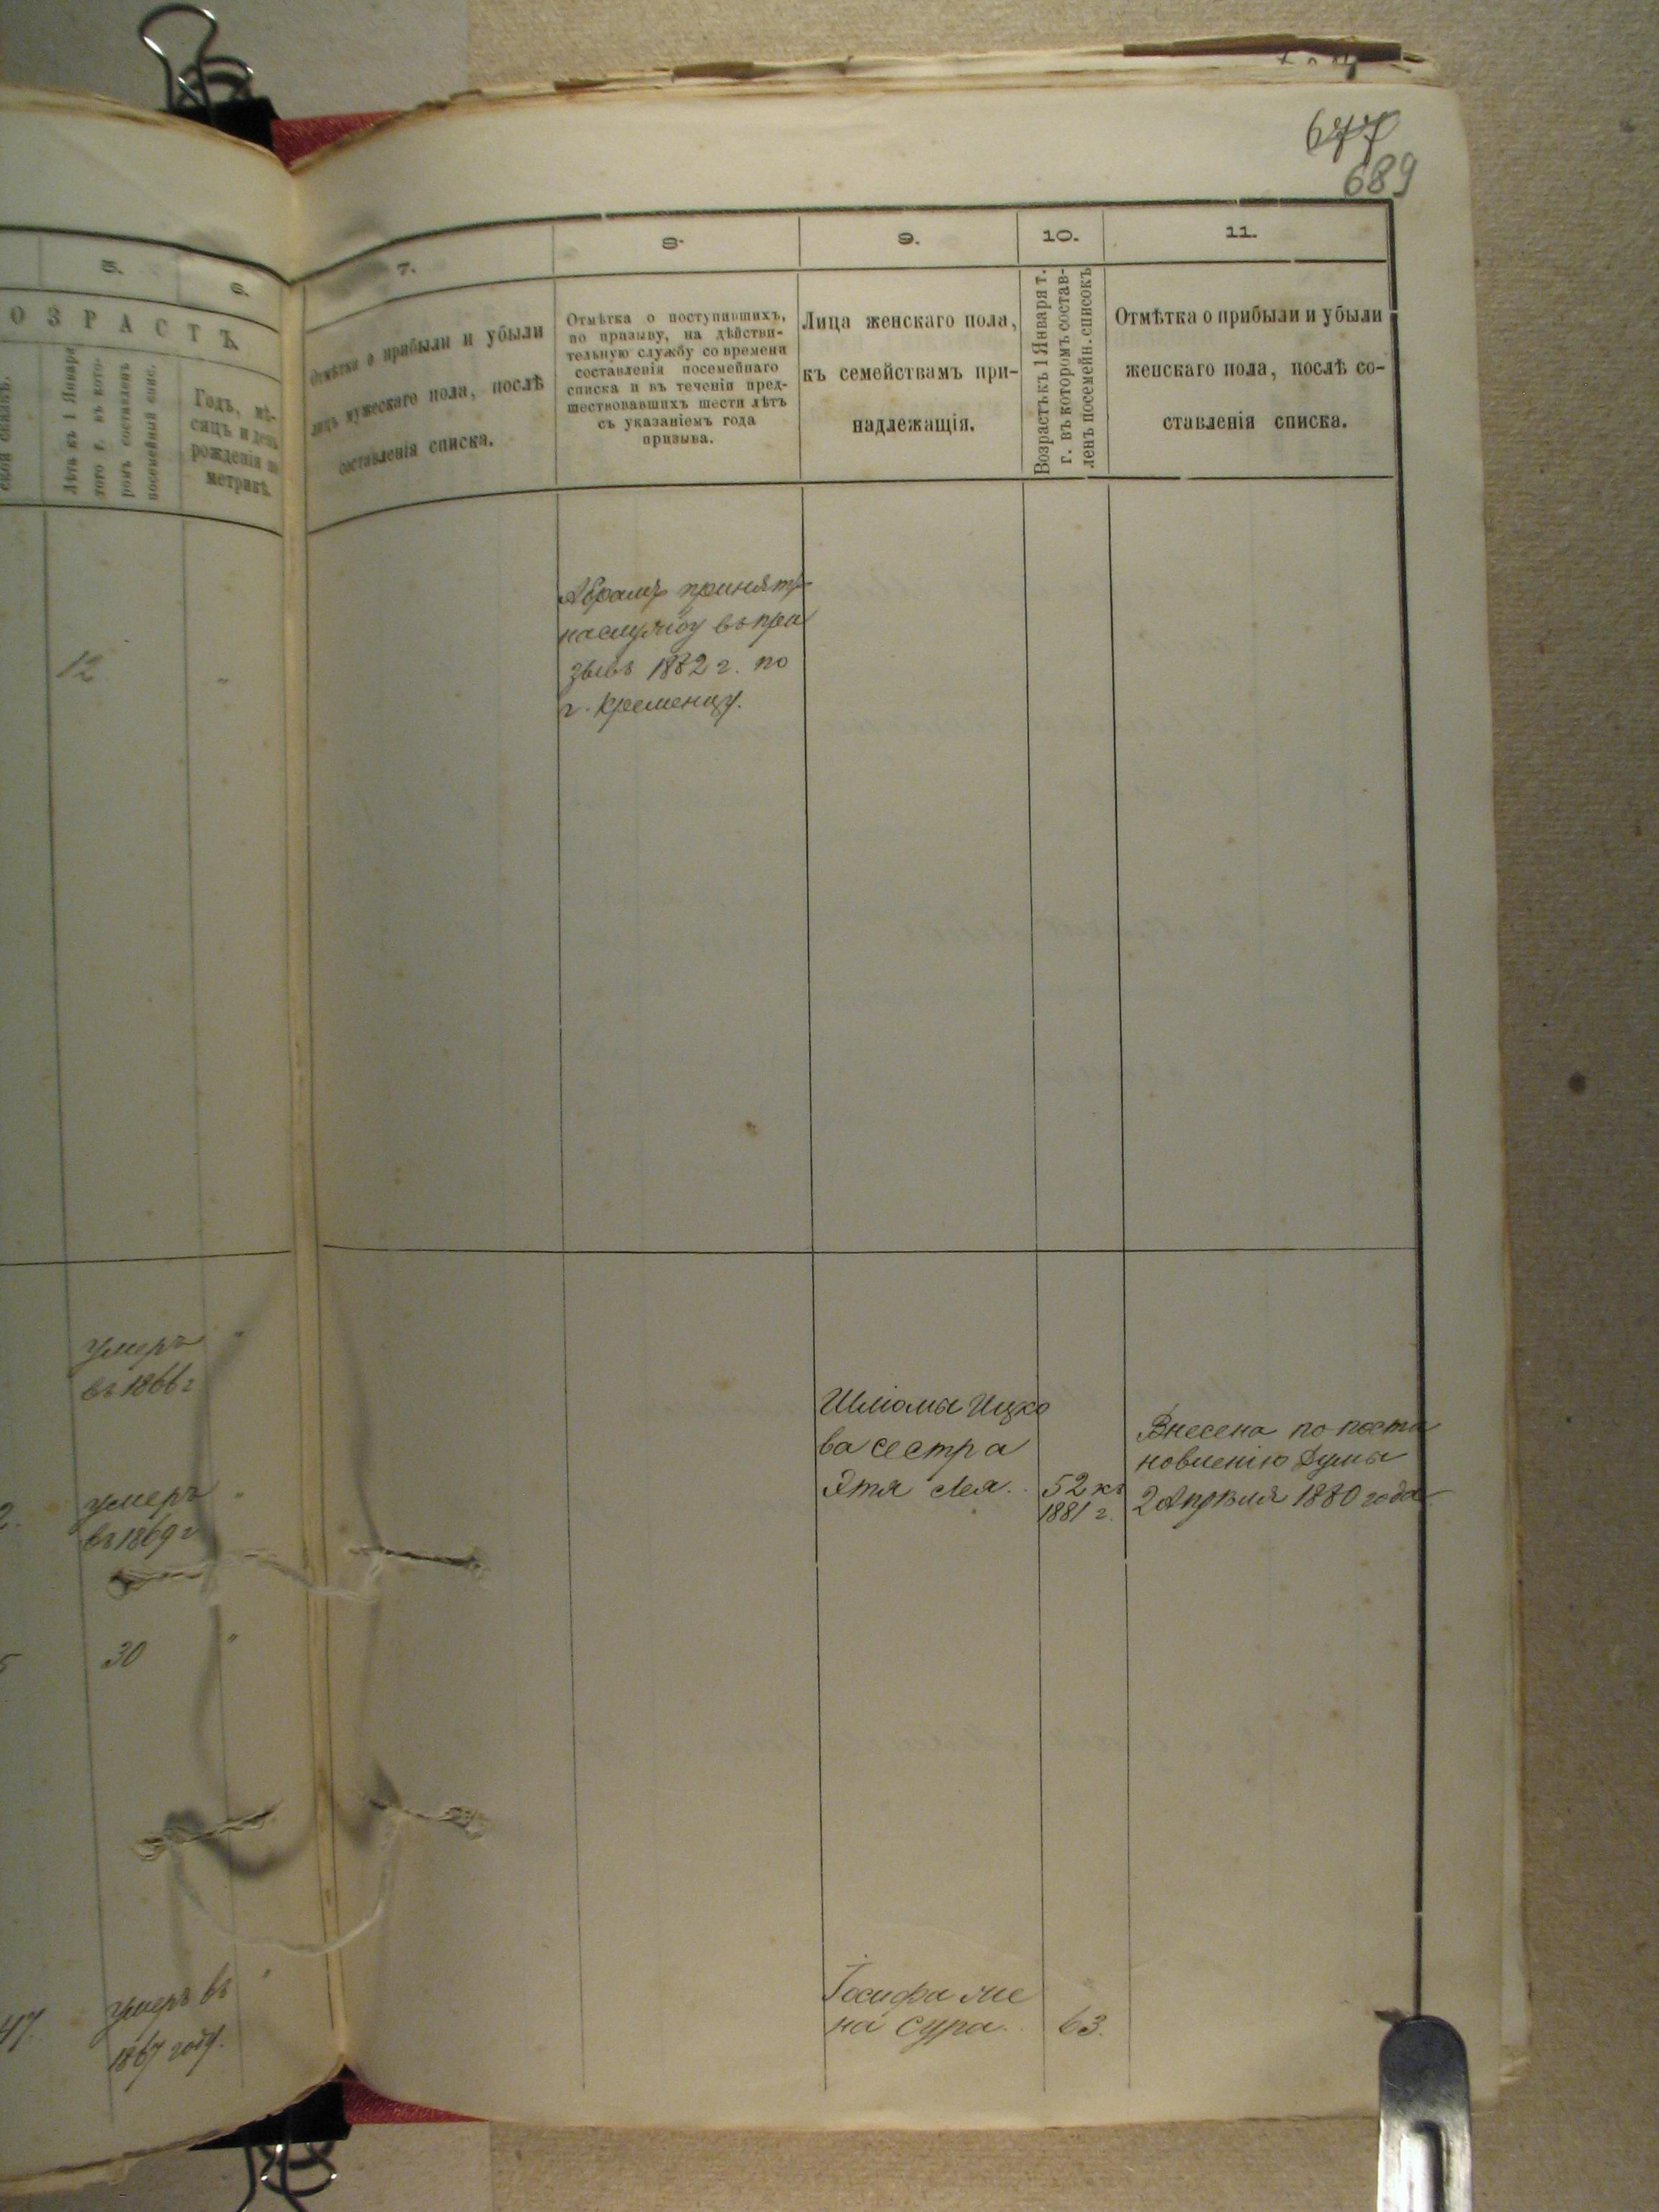 677
689
5.
6.
ОЗРАСТЪ
Лѣтъ къ 1 Января
того г. въ кото-
ромъ составленъ
посемейный спис.
Годъ, мѣ-
сяцъ и день
рожденія по
метрикѣ.
7.
Отмѣтка о прибыли и убыли
лицъ мужескаго пола, послѣ
составленія списка.
8.
Отмѣтка о поступившихъ,
по призыву, на дѣйстви-
тельную службу со времени
составленія посемейнаго
списка и въ теченіи пред-
шествовавшихъ шести лѣтъ
съ указаніемъ года
призыва.
9.
Лица женскаго пола,
къ семействамъ при-
надлежащія.
10.
Возрастъ къ 1 Января т.
г. въ которомъ состав-
ленъ посемейн. списокъ
11.
Отмѣтка о прибыли и убыли
женскаго пола, послѣ со-
ставленія списка.
12
"
Абрамъ принятъ
на службу въ при
зывъ 1882 г. по
г. Кременцу.
умеръ "
въ 1866 г
умеръ "
въ 1869 г
30 "
47. умеръ въ "
1867 году.
Шліомы Ицко
ва сестра
Этя Лея. 52 къ
1881 г.
Внесена по поста
новленію Думы
2 Апрѣля 1880 года
Іосифа же
на Сура. 63.